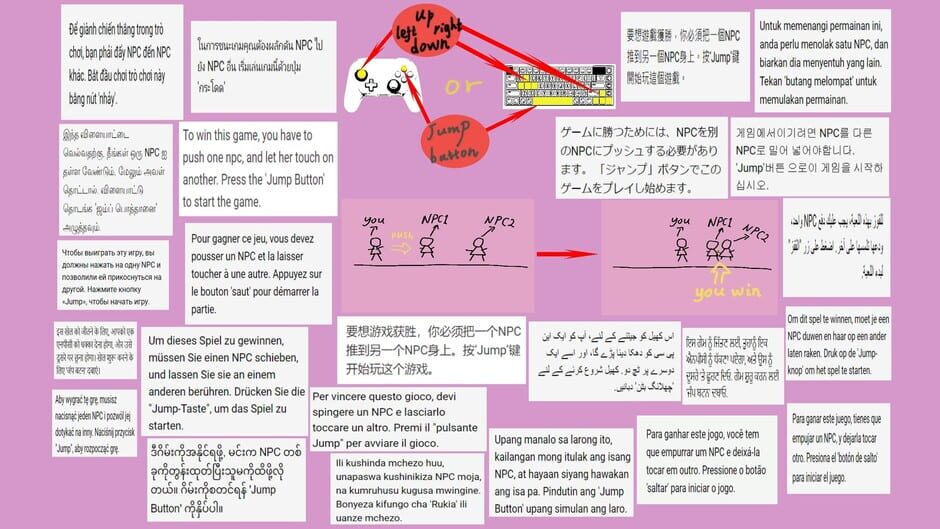 Để giành chiến thắng trong trò
chơi, bạn phải đẩy NPC đến NPC
khác. Bắt đầu chơi trò chơi này
bằng nút 'nhảy'.
ในการชนะเกมคุณต้องผลักดัน NPC ไป
ยัง NPC อื่น เริ่มเล่นเกมนี้ด้วยปุ่ม
'กระโดด'
up
left right
down
or
Jump
button
要想遊戲獲勝，你必須把一個NPC
推到另一個NPC身上。按'Jump'鍵
開始玩這個遊戲。
Untuk memenangi permainan ini,
anda perlu menolak satu NPC, dan
biarkan dia menyentuh yang lain.
Tekan 'butang melompat' untuk
memulakan permainan.
இந்த விளையாட்டை
வெல்வதற்கு, நீங்கள் ஒரு NPC ஐ
தள்ள வேண்டும், மேலும் அவள்
தொட்டால். விளையாட்டு
தொடங்க 'ஜம்ப் பொத்தானை'
அழுத்தவும்.
To win this game, you have to
push one npc, and let her touch on
another. Press the 'Jump Button'
to start the game.
ゲームに勝つためには、NPCを別
のNPCにプッシュする必要があり
ます。「ジャンプ」ボタンでこの
ゲームをプレイし始めます。
게임에서이기려면 NPC를 다른
NPC로 밀어 넣어야합니다.
'Jump'버튼 으로이 게임을 시작하
십시오.
للفوز بهذه اللعبة، يجب عليك دفع NPC واحد،
ودعها تلمسها على آخر. اضغط على زر "القفز"
لبدء اللعبة.
Чтобы выиграть эту игру, вы
должны нажать на одну NPC и
позволили ей прикоснуться на
другой. Нажмите кнопку
«Jump», чтобы начать игру.
Pour gagner ce jeu, vous devez
pousser un NPC et la laisser
toucher à une autre. Appuyez sur
le bouton 'saut' pour démarrer la
partie.
you
PUSH
NPC1
NPC2
you
NPC1
NPC2
you win
इस खेल को जीतने के लिए, आपको एक
एनपीसी को धक्का देना होगा, और उसे
दूसरे पर छूना होगा। खेल शुरू करने के
लिए 'जंप बटन' दबाएं।
Um dieses Spiel zu gewinnen,
müssen Sie einen NPC schieben,
und lassen Sie sie an einem
anderen berühren. Drücken Sie die
"Jump-Taste", um das Spiel zu
starten.
要想游戏获胜，你必须把一个NPC
推到另一个NPC身上。按'Jump'键
开始玩这个游戏。
اس کھیل کو جیتنے کے لئے، آپ کو ایک این
پی سی کو دھکا دینا پڑے گا، اور اسے ایک
دوسرے پر ٹچ دو. کھیل شروع کرنے کے لئے
'چھلانگ بٹن' دبائیں.
ਇਸ ਗੇਮ ਨੂੰ ਜਿੱਤਣ ਲਈ, ਤੁਹਾਨੂੰ ਇਕ
ਐਨਪੀਸੀ ਨੂੰ ਧੱਕਣਾ ਪਏਗਾ, ਅਤੇ ਉਸ ਨੂੰ
ਦੂਸਰੇ 'ਤੇ ਛੂਹਣ ਦਿਓ. ਗੇਮ ਸ਼ੁਰੂ ਕਰਨ ਲਈ
'ਜੰਪ ਬਟਨ' ਦਬਾਓ.
Om dit spel te winnen, moet je een
NPC duwen en haar op een ander
laten raken. Druk op de 'Jump-
knop' om het spel te starten.
Aby wygrać tę grę, musisz
nacisnąć jeden NPC i pozwól jej
dotykać na inny. Naciśnij przycisk
"Jump", aby rozpocząć grę.
ဒီဂိမ်းကိုအနိုင်ရဖို့, မင်းက NPC တစ်
ခုကိုတွန်းထုတ်ပြီးသူမကိုထိဖို့လို
တယ်။ ဂိမ်းကိုစတင်ရန် 'Jump
Button' ကိုနှိပ်ပါ။
Per vincere questo gioco, devi
spingere un NPC e lasciarlo
toccare un altro. Premi il "pulsante
Jump" per avviare il gioco.
Ili kushinda mchezo huu,
unapaswa kushinikiza NPC moja,
na kumruhusu kugusa mwingine.
Bonyeza kifungo cha 'Rukia' ili
uanze mchezo.
Upang manalo sa larong ito,
kailangan mong itulak ang isang
NPC, at hayaan siyang hawakan
ang isa pa. Pindutin ang 'Jump
Button' upang simulan ang laro.
Para ganhar este jogo, você tem
que empurrar um NPC e deixá-la
tocar em outro. Pressione o botão
'saltar' para iniciar o jogo.
Para ganar este juego, tienes que
empujar un NPC, y dejarla tocar
otro. Presiona el 'botón de salto'
para iniciar el juego.